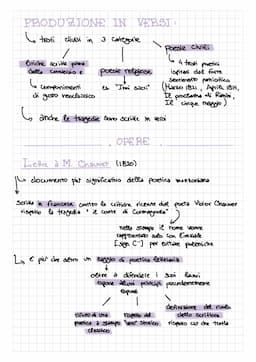 PRODUZIONE IN VERSI:
↳ testi divisi in 3 categorie
poesie civili
liriche scritte prima
della conversione
poesie religiose
↳ 4 testi poetici
ispirati dal forte
sentimento patriottico
(Marzo 1821, Aprile 1814,
Il proclama di Rimini,
Il cinque maggio)
↳ componimenti
di gusto neoclassico
es "Inni sacri"
↳ anche le tragedie sono scritte in versi
OPERE
Lettre à M. Chauvet (1820)
↳ documento più significativo della poetica manzoniana
scritta in francese contro le critiche ricevute dal poeta Victor Chauvet
rispetto la tragedia "il conte di Carmagnola"
nella stampa il nome venne
rappresentato solo con l'iniziale
[sign C~] per evitare polemiche
↳ è più che altro un saggio di poetica letteraria
oltre a difendere i suoi
espone alcuni principi
espone
rifiuto di una
poetica a stampo
classico
rispetto del
"vero" storico
definizione del ruolo
dello scrittore
rispetto ciò che tratta